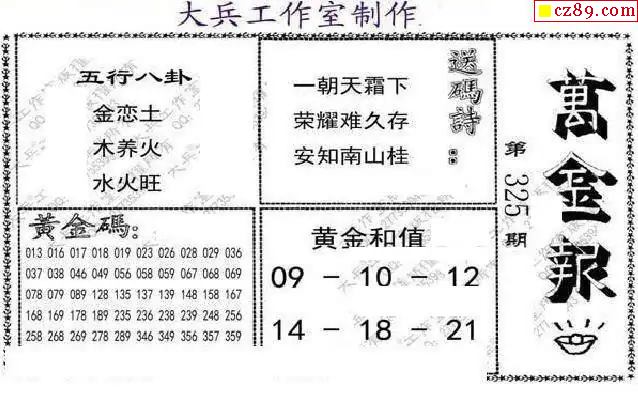 大兵工作室制作
cz89.com
五行八卦
金恋土
木养火
水火旺
送碼詩:
一朝天霜下
荣耀难久存
安知南山桂
萬金报
第325期
黃金碼:
013 016 017 018 019 023 026 028 029 036
037 038 046 049 056 058 059 067 068 069
078 079 089 128 127 129 139 145 148 157
168 169 178 189 235 236 238 239 248 256
258 268 269 278 289 346 349 356 357 359
黄金和值
09 - 10 - 12
14 - 18 - 21